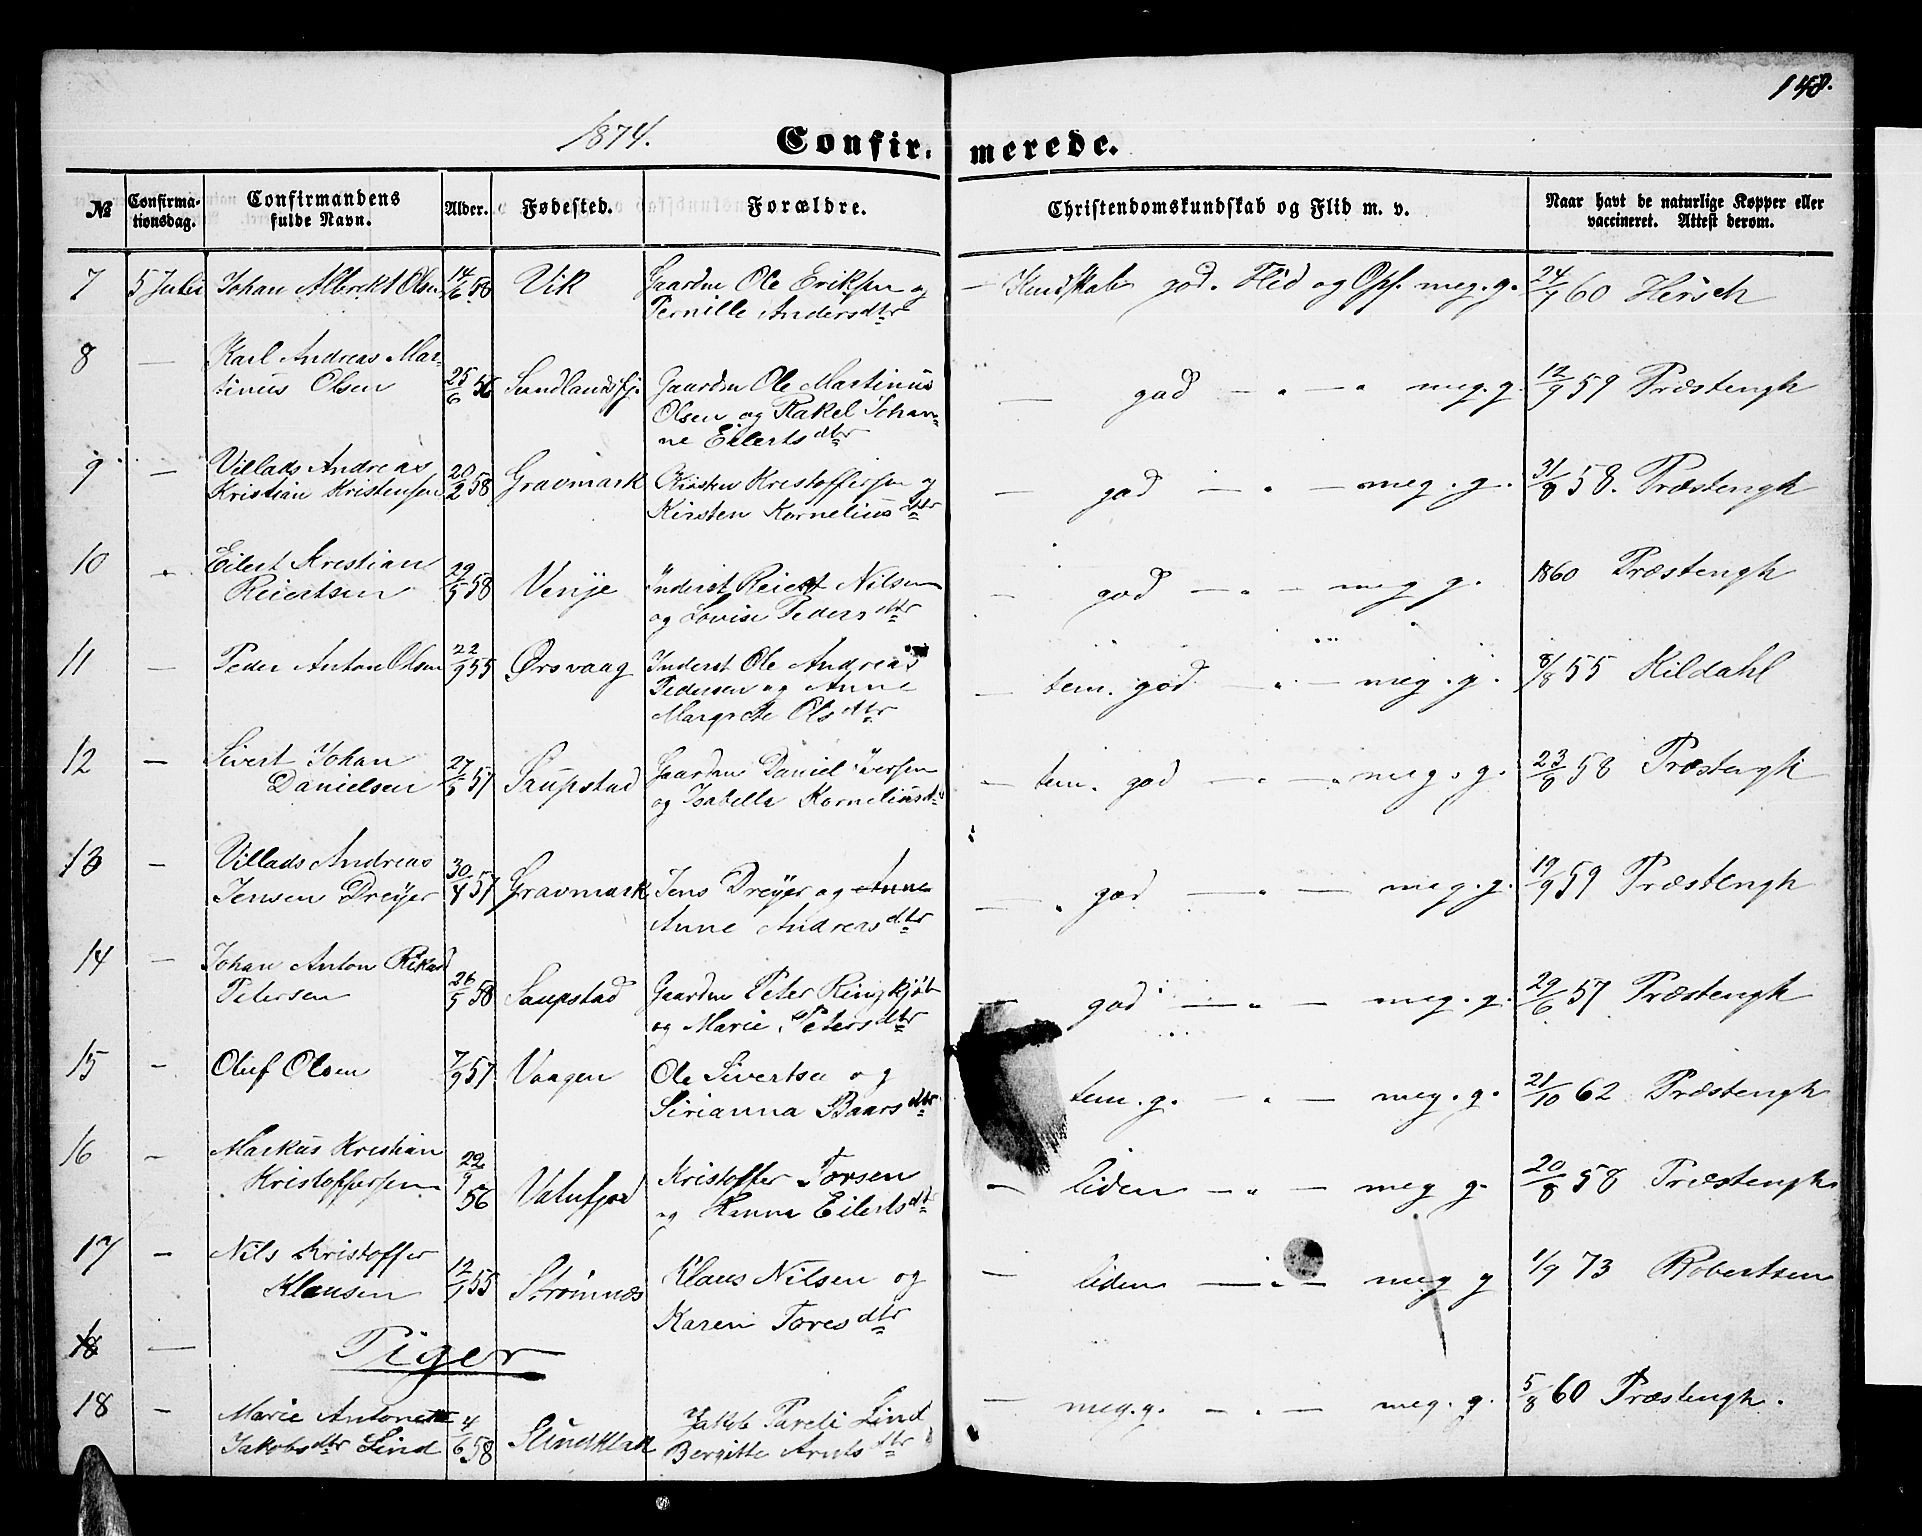 148.
1874. Confir- merede.
№ Confirma- tionsdag. Confirmandens fulde Navn. Alder. Fødested. Forældre. Christendomskundskab og Flid m. v. Naar havt de naturlige Kopper eller vaccineret. Attest derom.
7 5 Juli Johan Albrekt Olsen 14/6 58 Vik Gaardm Ole Eriksen og — Kundskab god. Flid og Opf. meg. g. 24/9 60 Hersch
Pernille Andersdtr
8 — Karl Andreas Mar-
tinus Olsen 25/6 56 Sundlandsfj. Gaardm Ole Martinus — god — " — " meg. g. 12/9 59 Præstengh
Olsen og Rakel Johan-
ne Eilertsdtr
9 — Villads Andreas
Kristian Kristensen 20/2 58 Gravmark Kristen Kristoffersen og — god — " — meg. g. 31/8 58. Præstengh
Kirsten Korneliusdtr
10 " Eilert Kristian
Reiertsen 29/5 58 Venje Inderst Reiert Nilsen — god — " — meg g. 1860 Præstengh
og Lovise Pedersdtr
11 — Peder Anton Olsen 22/9 55 Ørsvaag Inderst Ole Andreas
Pedersen og Anne — tem. god — " — meg. g. 8/8 55 Kildahl
Margrete Olsdtr
12 — Sivert Johan
Danielsen 27/5 57 Saupstad Gaardm Daniel Iversen — tem. god — " — " meg. g. 23/8 58 Præstengh
og Isabella Korneliusd
13 — Villads Andreas
Jensen Dreyer 30/4 57 Gravmark Jens Dreyer og Anne — " god — " — meg. g. 19/9 59 Præstengh
Anne Andreasdtr
14 — Johan Anton Rikard
Petersen 26/5 58 Saupstad Gaardm Peter Ringkjøb — god — " — meg. g. 29/6 57 Præstengh
og Marie Petersdtr
15 — Oluf Olsen 7/9 57 Vaagen Ole Sivertsen og
Sirianna Baarsdtr tem. g. — " — meg. g. 21/10 62 Præstengh
16 — Markus Kristian
Kristoffersen 22/9 56 Vatnfjord Kristoffer Torsen — liden — " — meg g. 20/8 58 Præstengh.
og Hanna Eilertsdtr
17 — Nils Kristoffer
Klausen 12/9 55 Strømnæs Klaus Nilsen og — liden — " — meg g 1/9 73 Robertsen
Karen Toresdtr
18 — Piger
18 — Marie Antonette
Jakobsdtr Lind 4/6 58 Sundklak Jakob Pareli Lind — meg. g. — " — meg. g. 5/8 60 Præstengh.
Bergitte Arntsdtr